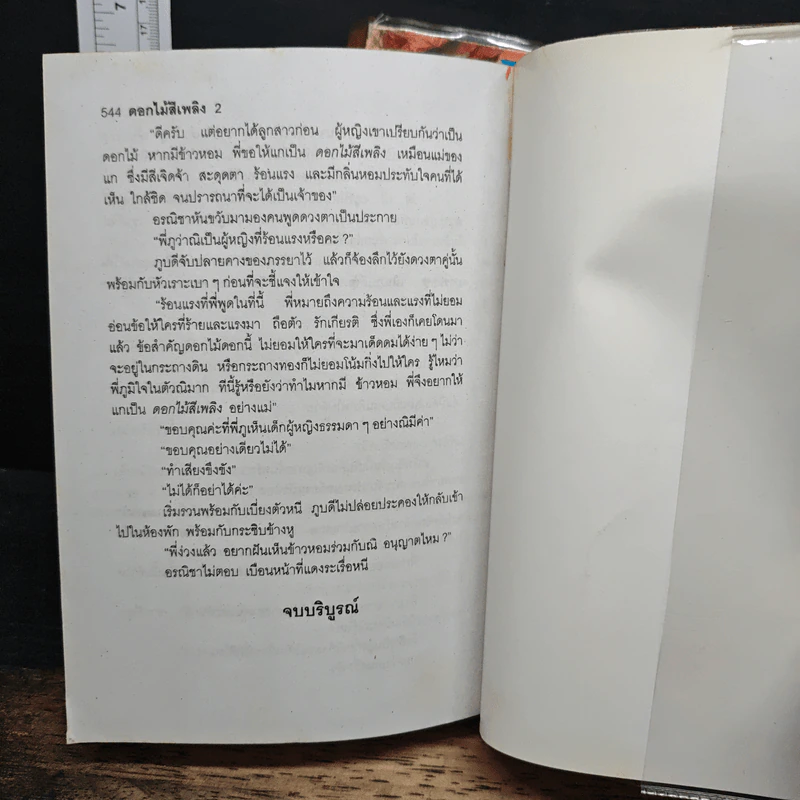 544 ดอกไม้สีเพลิง 2
“ดีครับ แต่อยากได้ลูกสาวก่อน ผู้หญิงเขาเปรียบกันว่าเป็น
ดอกไม้ หากมีข้าวหอม พี่ขอให้แกเป็น ดอกไม้สีเพลิง เหมือนแม่ของ
แก ซึ่งมีสีเจิดจ้า สะดุดตา ร้อนแรง และมีกลิ่นหอมประทับใจคนที่ได้
เห็น ใกล้ชิด จนปรารถนาที่จะได้เป็นเจ้าของ”
อรณิชาหันขวับมามองคนพูดดวงตาเป็นประกาย
“พี่ภูว่าณิเป็นผู้หญิงที่ร้อนแรงหรือคะ ?”
ภูบดีจับปลายคางของภรรยาไว้ แล้วก็จ้องลึกไว้ยังดวงตาคู่นั้น
พร้อมกับหัวเราะเบา ๆ ก่อนที่จะชี้แจงให้เข้าใจ
“ร้อนแรงที่พี่พูดในที่นี้ พี่หมายถึงความร้อนและแรงที่ไม่ยอม
อ่อนข้อให้ใครที่ร้ายและแรงมา ถือตัว รักเกียรติ ซึ่งพี่เองก็เคยโดนมา
แล้ว ข้อสำคัญดอกไม้ดอกนี้ ไม่ยอมให้ใครที่จะมาเด็ดดมได้ง่าย ๆ ไม่ว่า
จะอยู่ในกระถางดิน หรือกระถางทองก็ไม่ยอมโน้มกิ่งไปให้ใคร รู้ไหมว่า
พี่ภูมิใจในตัวณิมาก ทีนี้รู้หรือยังว่าทำไมหากมี ข้าวหอม พี่จึงอยากให้
แกเป็น ดอกไม้สีเพลิง อย่างแม่”
“ขอบคุณค่ะที่พี่ภูเห็นเด็กผู้หญิงธรรมดา ๆ อย่างณิมีค่า”
“ขอบคุณอย่างเดียวไม่ได้”
“ทำเสียงขึงขัง”
“ไม่ได้ก็อย่าได้ค่ะ”
เริ่มรวนพร้อมกับเบี่ยงตัวหนี ภูบดีไม่ปล่อยประคองให้กลับเข้า
ไปในห้องพัก พร้อมกับกระซิบข้างหู
“พี่ง่วงแล้ว อยากฝันเห็นข้าวหอมร่วมกับณิ อนุญาตไหม ?”
อรณิชาไม่ตอบ เบือนหน้าที่แดงระเรื่อหนี
จบบริบูรณ์